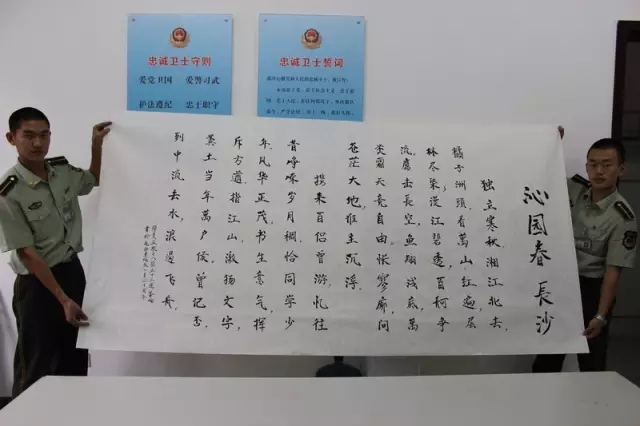 忠诚卫士守则
爱党卫国 爱警习武
护法遵纪 忠于职守
忠诚卫士誓词
沁园春 長沙
独立寒秋,湘江北去,
橘子洲頭。看萬山红遍,层
林尽染;漫江碧透,百舸争
流。鹰击長空,魚翔浅底,萬
类霜天竞自由。怅寥廓,问
苍茫大地,谁主沉浮。
携来百侣曾游,忆往
昔峥嵘岁月稠。恰同学少
年,风华正茂;书生意气,挥
斥方遒。指江山,激扬文字,
粪土当年萬户侯。曾记否,
到中流击水,浪遏飞舟。